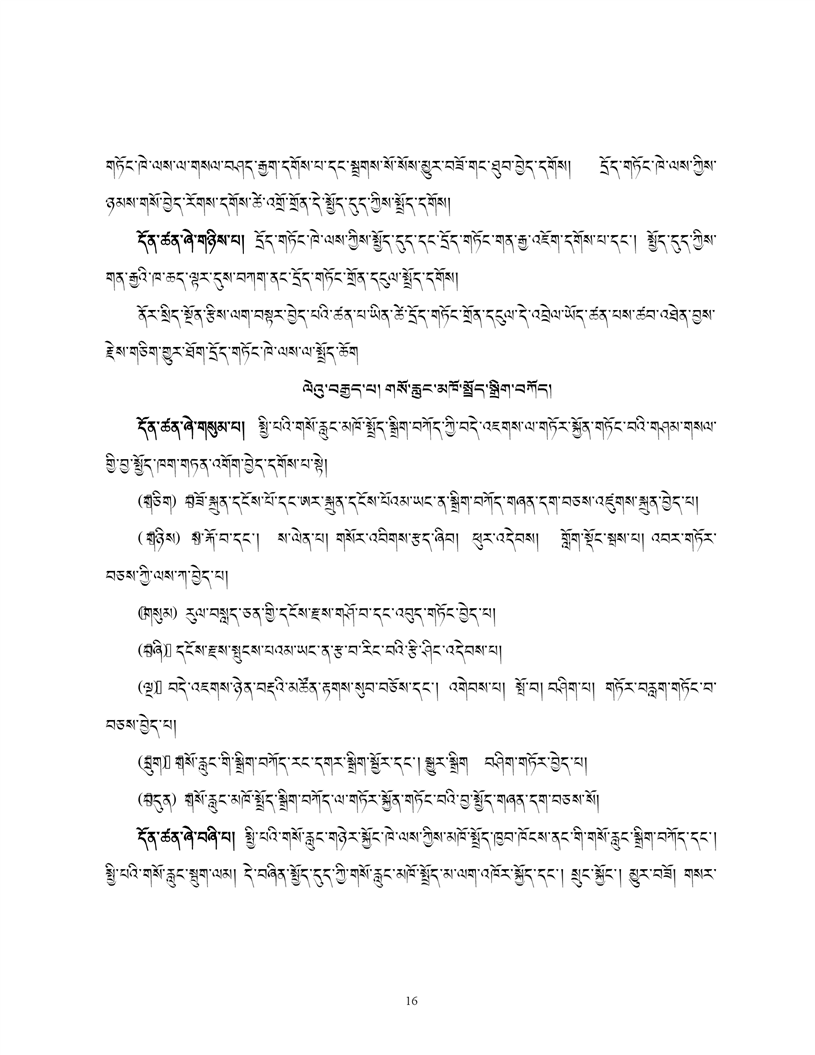 གཏོང་ཁེ་ལས་ལ་གསལ་བཤད་རྒྱག་དགོས་པ་དང་སྟབས་སོ་སོས་མྱུར་བཟོ་གང་ཐུབ་བྱེད་དགོས། དྲོད་གཏོང་ཁེ་ལས་ཀྱིས་
ཉམས་གསོ་བྱེད་རོགས་དགོས་ཚེ་འགྲོ་གྲོན་དེ་སྤྱོད་དུད་ཀྱིས་སྤྲོད་དགོས།
དོན་ཚན་ཞེ་གཉིས་པ། དྲོད་གཏོང་ཁེ་ལས་ཀྱིས་སྤྱོད་དུད་དང་དྲོད་གཏོང་གན་རྒྱ་འཇོག་དགོས་པ་དང་། སྤྱོད་དུད་ཀྱིས་
གན་རྒྱའི་ཁ་ཆད་ལྟར་དུས་བཀག་ནང་དྲོད་གཏོང་གྲོན་དངུལ་སྤྲོད་དགོས།
ནོར་སྲིད་སྔོན་རྩིས་ལག་བསྟར་བྱེད་པའི་ཚན་པ་ཡིན་ཚེ་དྲོད་གཏོང་གྲོན་དངུལ་དེ་འབྲེལ་ཡོད་ཚན་པས་ཚབ་འཐེན་བྱས་
རྗེས་གཅིག་གྱུར་ཐོག་དྲོད་གཏོང་ཁེ་ལས་ལ་སྤྲོད་ཆོག
ལེའུ་བརྒྱད་པ། གསོ་རླུང་མཁོ་སྤྲོད་སྒྲིག་བཀོད།
དོན་ཚན་ཞེ་གསུམ་པ། སྤྱི་པའི་གསོ་རླུང་མཁོ་སྤྲོད་སྒྲིག་བཀོད་ཀྱི་བདེ་འཇགས་ལ་གཏོར་སྐྱོན་གཏོང་བའི་གཤམ་གསལ་
གྱི་བྱ་སྤྱོད་ཁག་གཏན་འགོག་བྱེད་དགོས་པ་སྟེ།
(གཅིག) བཟོ་སྐྲུན་དངོས་པོ་དང་ཨར་སྐྲུན་དངོས་པོའམ་ཡང་ན་སྒྲིག་བཀོད་གཞན་དག་བཅས་འཛུགས་སྐྲུན་བྱེད་པ།
(གཉིས) ས་རྐོ་བ་དང་། ས་ལེན་པ། གསོར་འབིགས་རྩད་ཞིབ། ཕུར་འདེབས། གློག་སྡོང་སྦས་པ། འབར་གཏོར་
བཅས་ཀྱི་ལས་ཀ་བྱེད་པ།
(གསུམ) རུལ་བསླད་ཅན་གྱི་དངོས་རྫས་གཤོ་བ་དང་འབུད་གཏོང་བྱེད་པ།
(བཞི) དངོས་རྫས་སྤུངས་པའམ་ཡང་ན་རྩ་བ་རིང་བའི་རྩི་ཤིང་འདེབས་པ།
(ལྔ) བདེ་འཇགས་ཉེན་བརྡའི་མཚོན་རྟགས་སུབ་བཅོས་དང་། འགེབས་པ། སྤོ་བ། བཤིག་པ། གཏོར་བརླག་གཏོང་བ་
བཅས་བྱེད་པ།
(དྲུག) གསོ་རླུང་གི་སྒྲིག་བཀོད་རང་དགར་སྒྲིག་སྦྱོར་དང་། སྒྱུར་སྒྲིག བཤིག་གཏོར་བྱེད་པ།
(བདུན) གསོ་རླུང་མཁོ་སྤྲོད་སྒྲིག་བཀོད་ལ་གཏོར་སྐྱོན་གཏོང་བའི་བྱ་སྤྱོད་གཞན་དག་བཅས་སོ།
དོན་ཚན་ཞེ་བཞི་པ། སྤྱི་པའི་གསོ་རླུང་གཉེར་སྐྱོང་ཁེ་ལས་ཀྱིས་མཁོ་སྤྲོད་ཁྱབ་ཁོངས་ནང་གི་གསོ་རླུང་སྒྲིག་བཀོད་དང་།
སྤྱི་པའི་གསོ་རླུང་སྦུག་ལམ། དེ་བཞིན་སྤྱོད་དུད་ཀྱི་གསོ་རླུང་མཁོ་སྤྲོད་མ་ལག་འཁོར་སྐྱོད་དང་། སྲུང་སྐྱོང་། མྱུར་བཟོ། གསར་
16